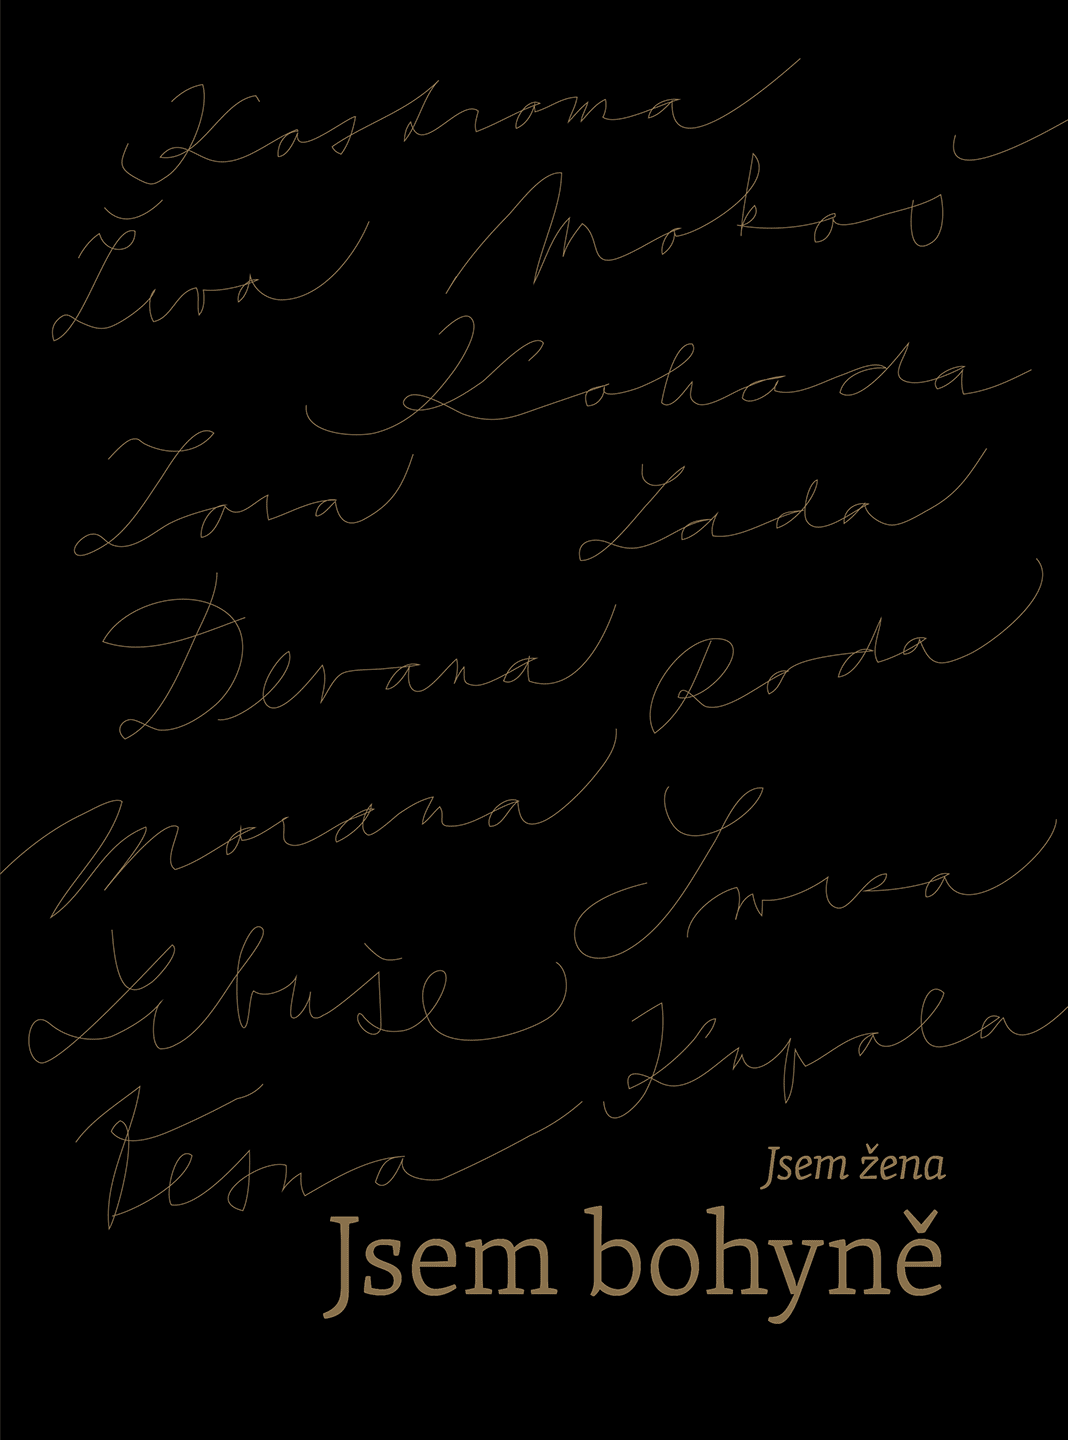 Kostroma
Živa Mokoš
Kohada
Zora Lada
Devana Roda
Morana
Libuše Kupala
Vesna
Jsem žena
Jsem bohyně